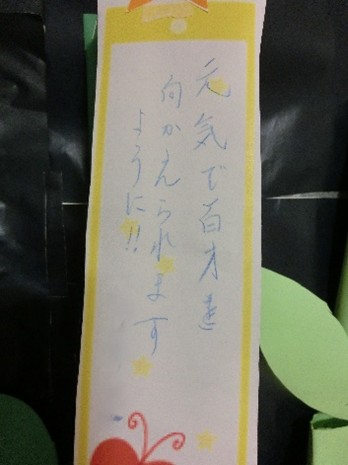 元気で百才を
向かえられます
ように!!